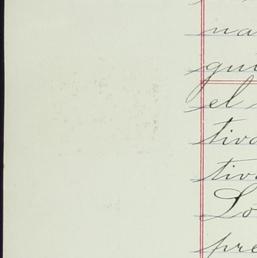 na
gui
el
tiva
tiv
Lo
pre